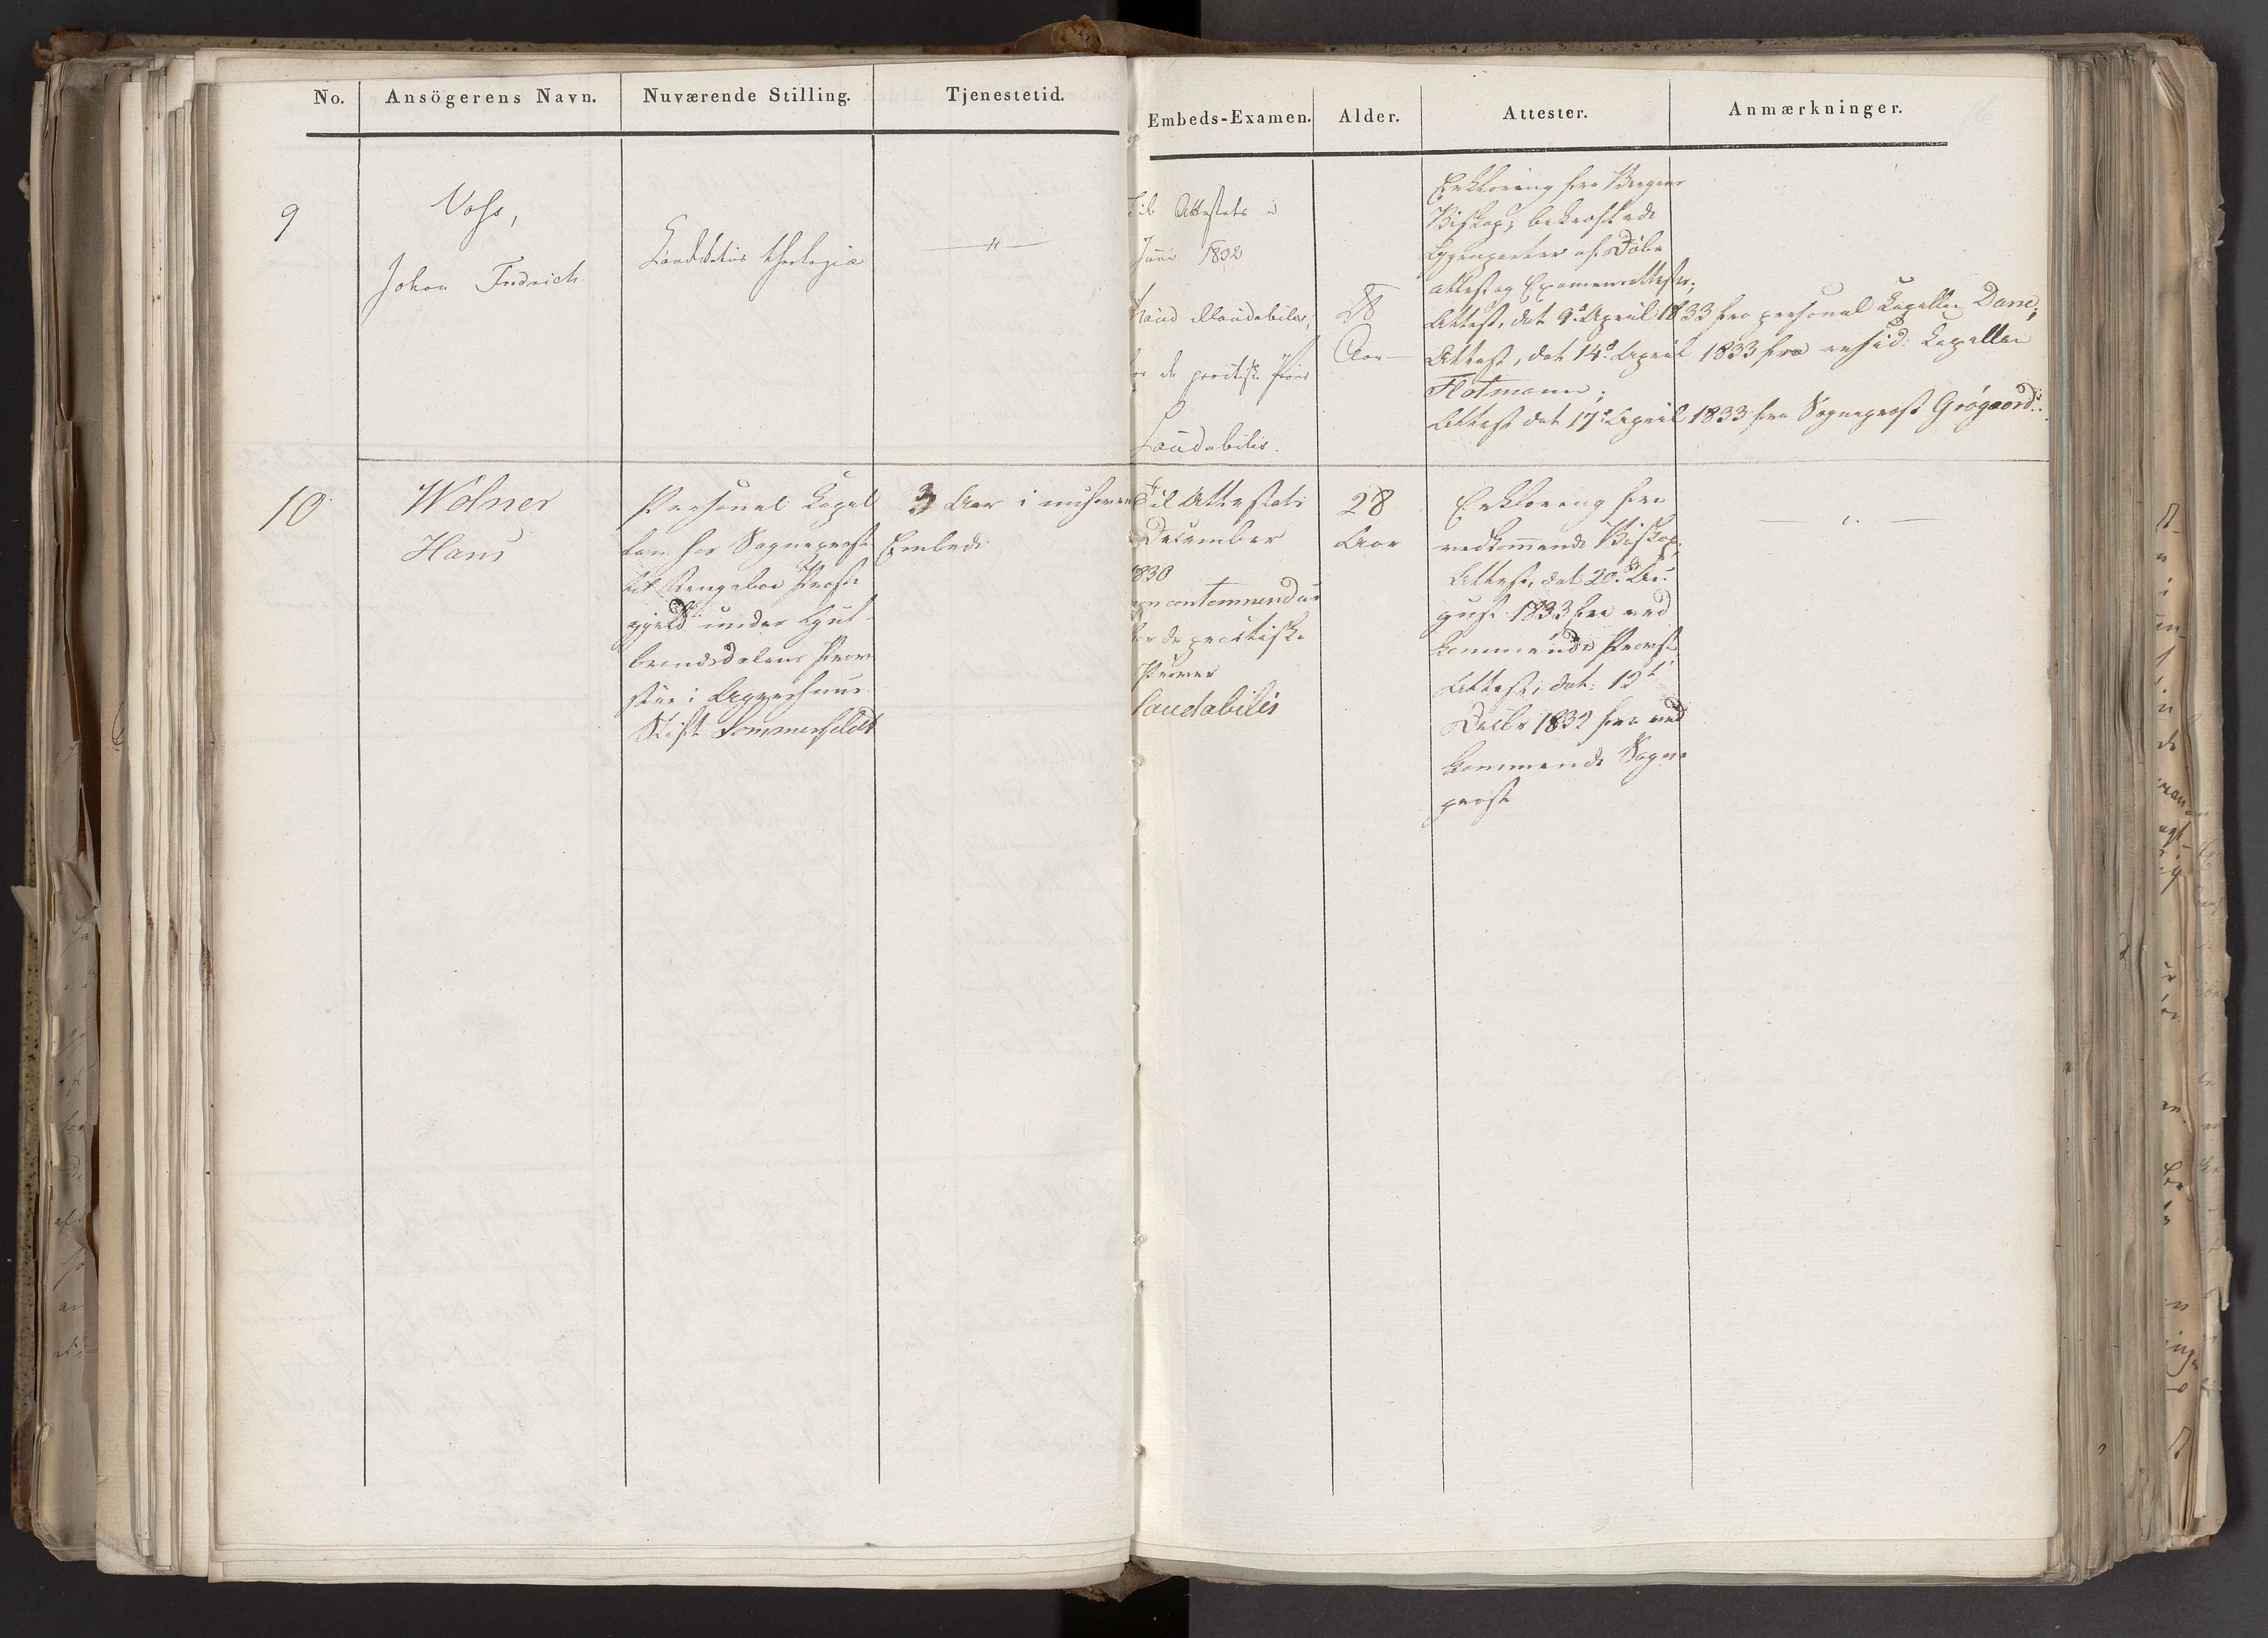 No.
Ansögerens Navn.
Nuværende Stilling.
Tjenestetid.
Embeds-Examen.
Alder.
Attester.
Anmærkninger.
9
Voss,
Johan Fredrich
Candidatus theologiæ
— " —
Til Attestats i
Juni 1832
haud illaudabilis,
for de practiske Prøver
Laudabilis.
28
Aar
Erklæring fra Bergens
Biskop; bekræftede
Gjenparter af Døbe
attest og Examensattester;
Attest, dat 9de April 1833 fra personel Capellan Dane;
Attest, dat 14de April 1833 fra resid: Capellan
Flotmann;
Attest dat 17de April 1833 fra Sognepræst Grøgaard.
10
Wölner
Hans
Personel Capel
lan hos Sognepræst
til Ringeboe Præste
gjeld under Gul-
brandsdalens Prov
stie i Aggershuus
Stift Sommerfeldt
3 Aar i nuværen
Embede
Til Attestats
December
1830
non contemnendus
for de practiske
Prøver
laudabilis
28
Aar
Erklæring fra
vedkommende Biskop;
Attest, dat 20de Au-
gust 1833 fra ved
kommende Provst
Attest, dat: 12t
Decbr 1832 fra ved
kommende Sogne
præst
— " —